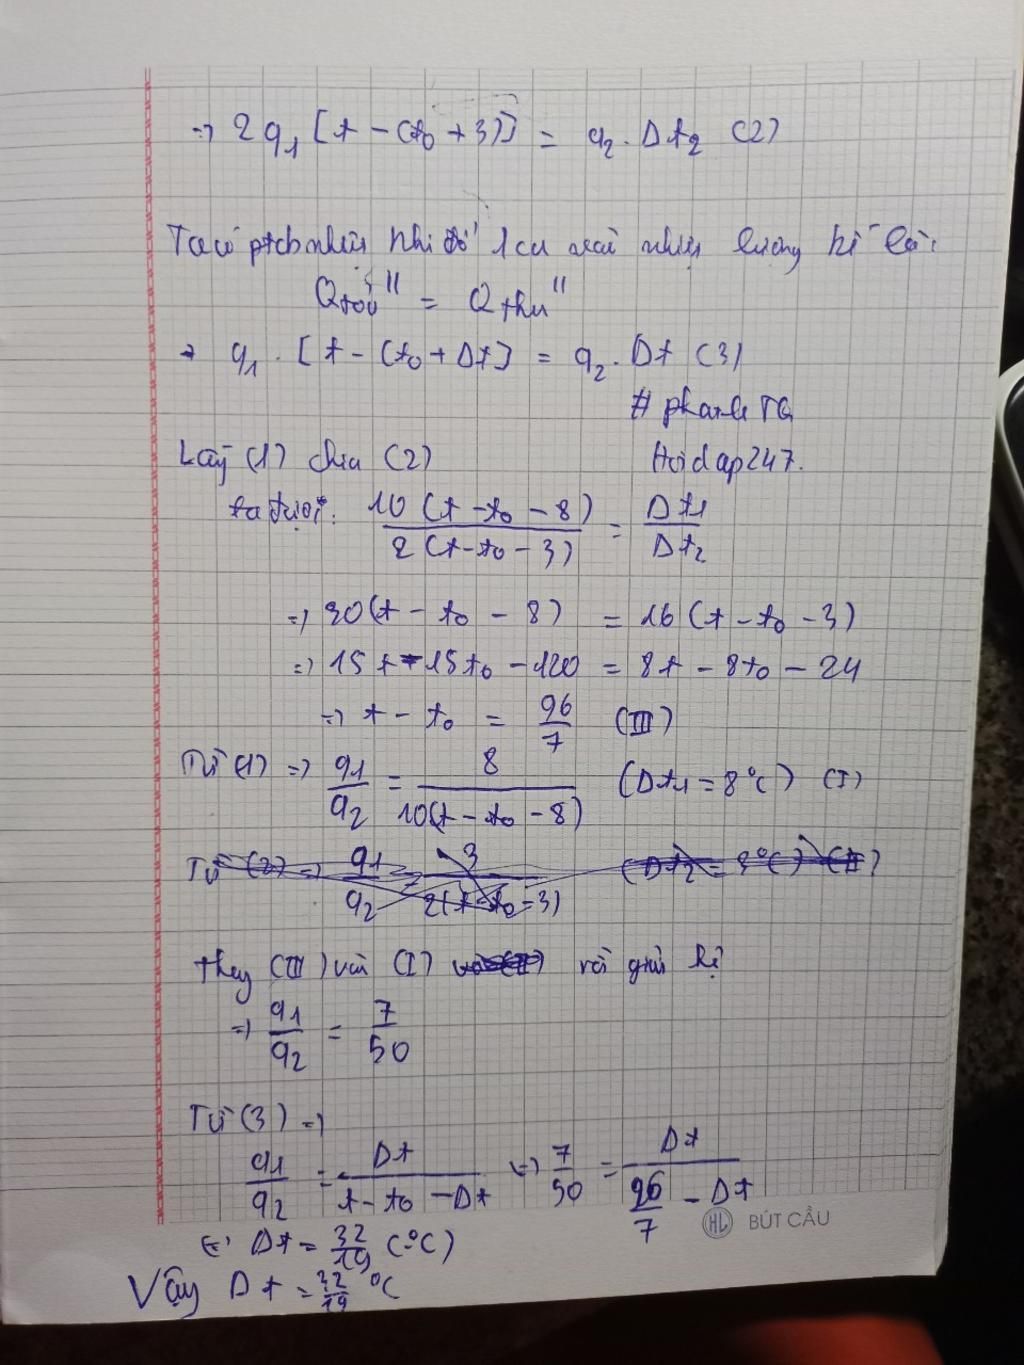 => 2q₁ [t - (t₀ + 3)] = q₂ . Δt₂ (2)
Ta có ptcb nhiệt khi đổ 1 ca vào nhiệt lượng kế là:
Qtỏa'' = Qthu''
→ q₁ . [t - (t₀ + Δt] = q₂ . Δt (3)
# phanhTG
Lấy (1) chia (2)
Hoidap247.
ta được: 10(t - t₀ - 8) / 2(t - t₀ - 3) = Δt₁ / Δt₂
=> 30(t - t₀ - 8) = 16(t - t₀ - 3)
=> 15t - 15t₀ - 120 = 8t - 8t₀ - 24
=> t - t₀ = 96/7 (III)
Từ (1) => q₁/q₂ = 8 / 10(t - t₀ - 8) (Δt₁ = 8°C) (I)
Từ (2) => q₁/q₂ = 3 / 2(t - t₀ - 3) (Δt₂ = 3°C) (II)
thay (III) vào (I) rồi giải hệ
=> q₁/q₂ = 7/50
Từ (3) =>
q₁/q₂ = Δt / t - t₀ - Δt => 7/50 = Δt / 96/7 - Δt
HL BÚT CẦU
<=> Δt = 32/19 (°C)
Vậy Δt = 32/19 °C